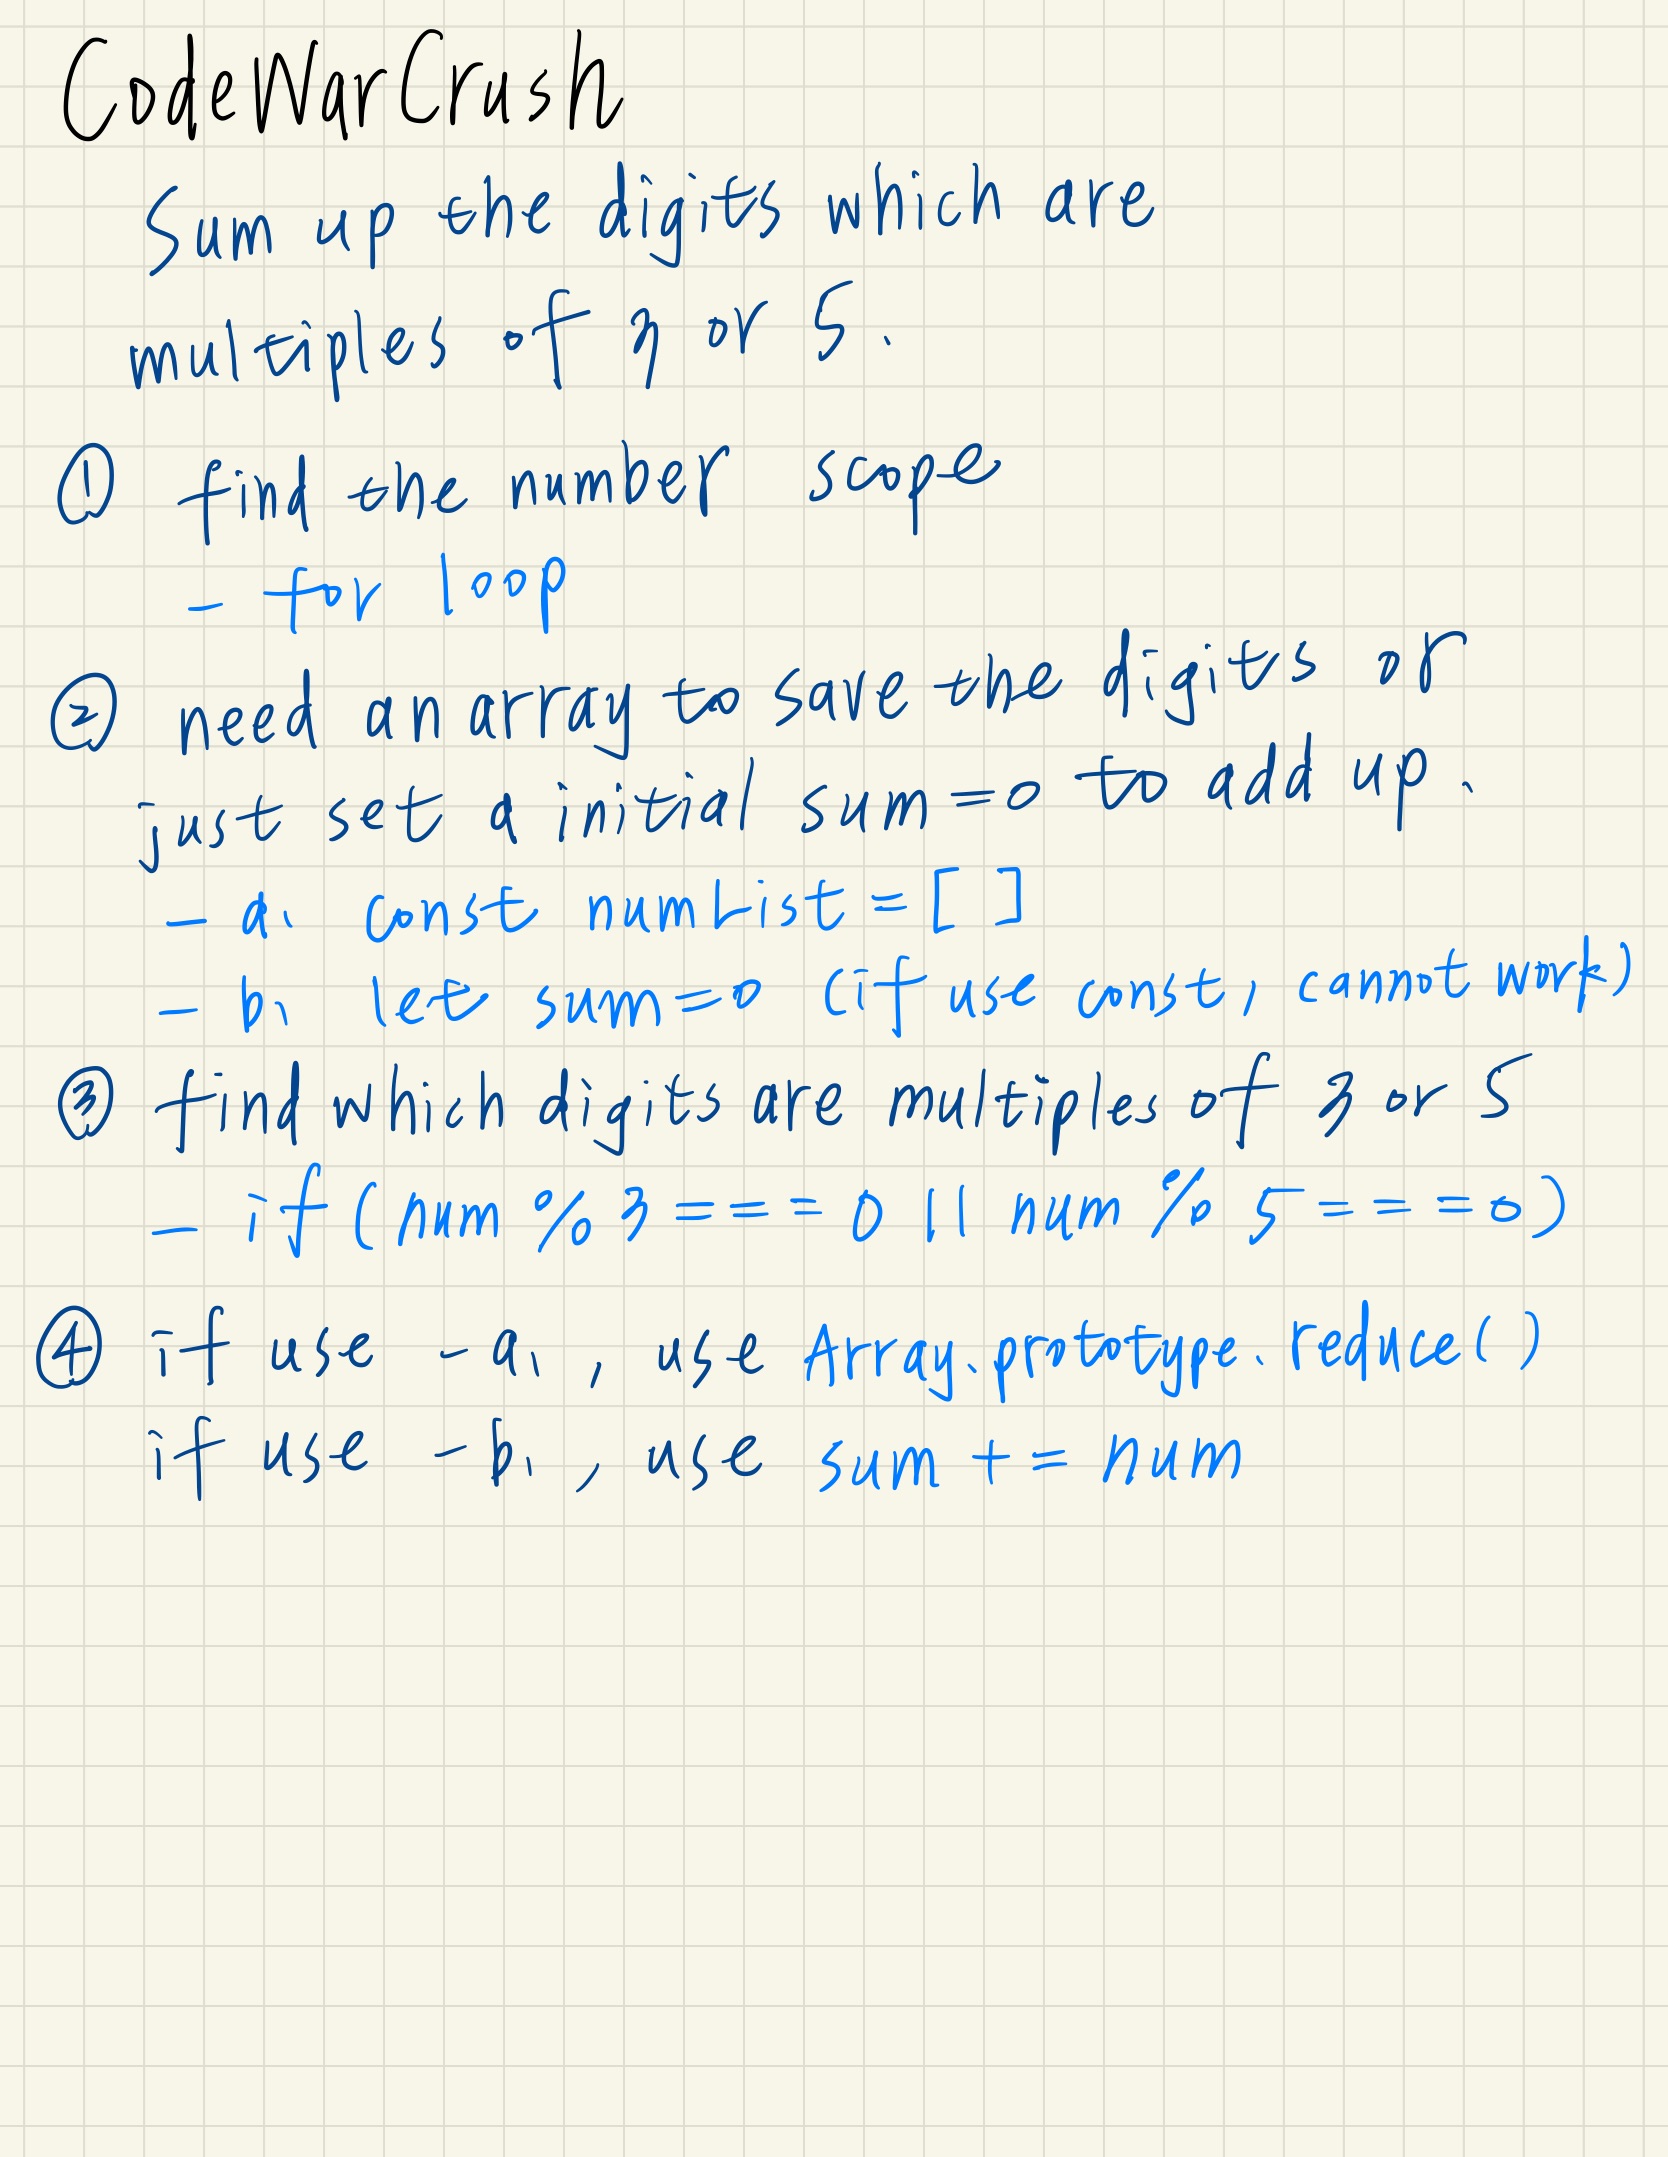 CodeWarCrush
Sum up the digits which are
multiples of 3 or 5.
① find the number scope
- for loop
② need an array to save the digits or
just set a initial sum=0 to add up.
- a. const numList = [ ]
- b. let sum=0 (if use const, cannot work)
③ find which digits are multiples of 3 or 5
- if (num % 3 === 0 || num % 5 === 0)
④ if use -a. , use Array.prototype.reduce()
if use -b. , use sum += num